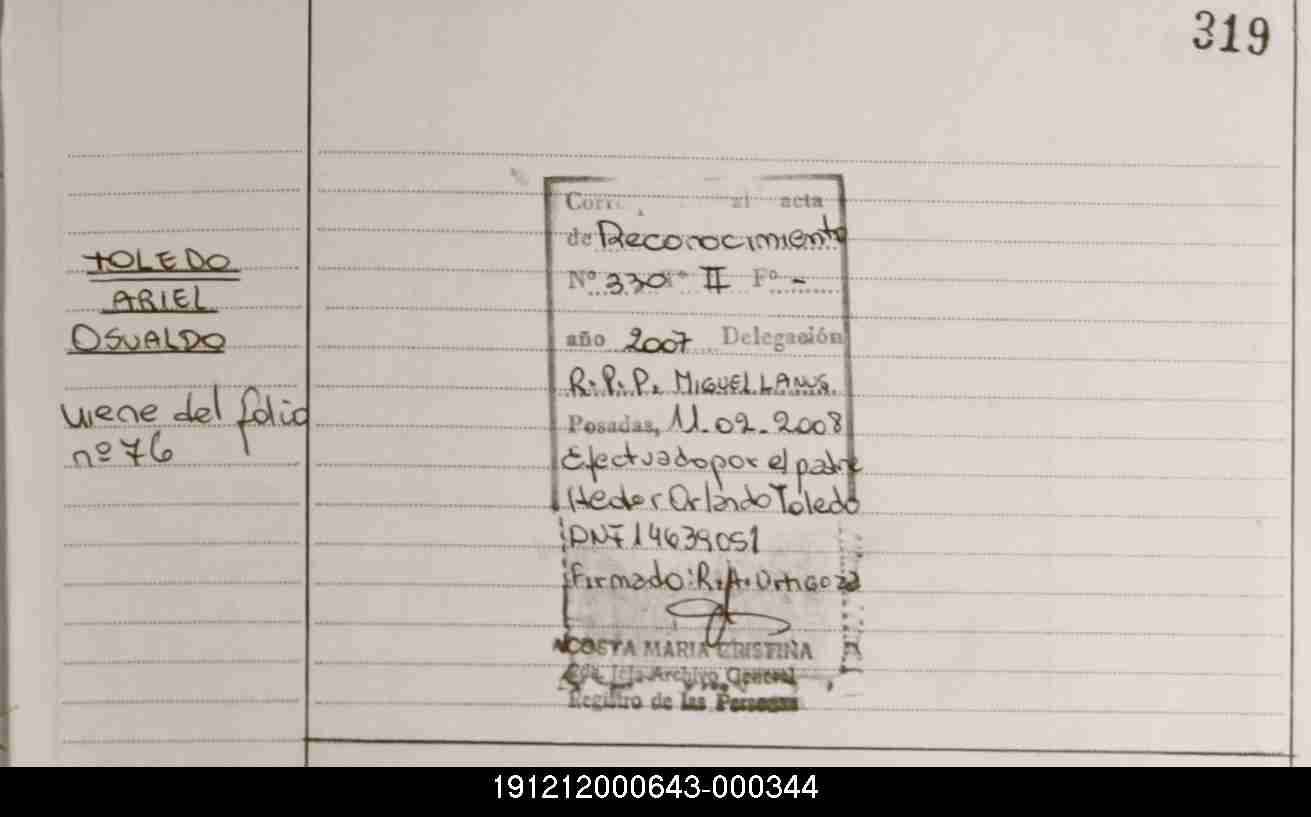 319
TOLEDO
ARIEL
OSVALDO
viene del folio
nº 76
Corr al acta
de Reconocimiento
Nº 330 Tº II Fº -
año 2007 Delegación
R.P.P. MIGUEL LANUS.
Posadas, 11-02-2008
Efectuado por el padre
Orlando Toledo
DNI 14639051
Firmado: R.A. Ortigoza
ACOSTA MARIA CRISTINA
Jefa Archivo General
Registro de las Personas
191212000643-000344